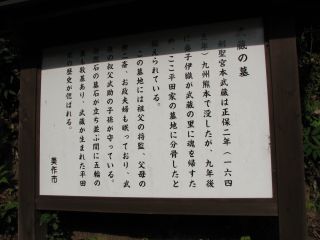 武蔵の墓
剣聖宮本武蔵は正保二年(一六四
五年)九州熊本で没したが、九年後
に養子伊織が武蔵の里に魂を帰すた
め、ここ平田家の墓地に分骨したと
伝えられている。
この墓地には祖父の将監、父母の
無二斎、お政夫婦も眠っており、武
蔵の叔父武助の子孫が守っている。
石の墓石が立ち並ぶ間に五輪の
墓も数基あり、武蔵が生まれた平田
家の歴史が偲ばれる。
美作市